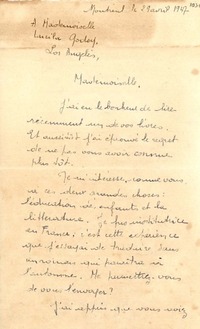 Montréal le 29 avril 1947
A Mademoiselle
Lucila Godoy,
Los Angeles,
Mademoiselle,
J'ai eu le bonheur de lire
récemment un de vos livres.
Et aussitôt j'ai éprouvé le regret
de ne pas vous avoir connue
plus tôt.
Je m'intéresse, comme vous,
à ces deux grandes choses:
l'éducation des enfants et la
littérature. Je fus institutrice
en France; c'est cette expérience
que j'essaye de traduire dans
un roman qui paraîtra à
l'automne. Me permettez-vous
de vous l'envoyer?
J'ai appris que vous